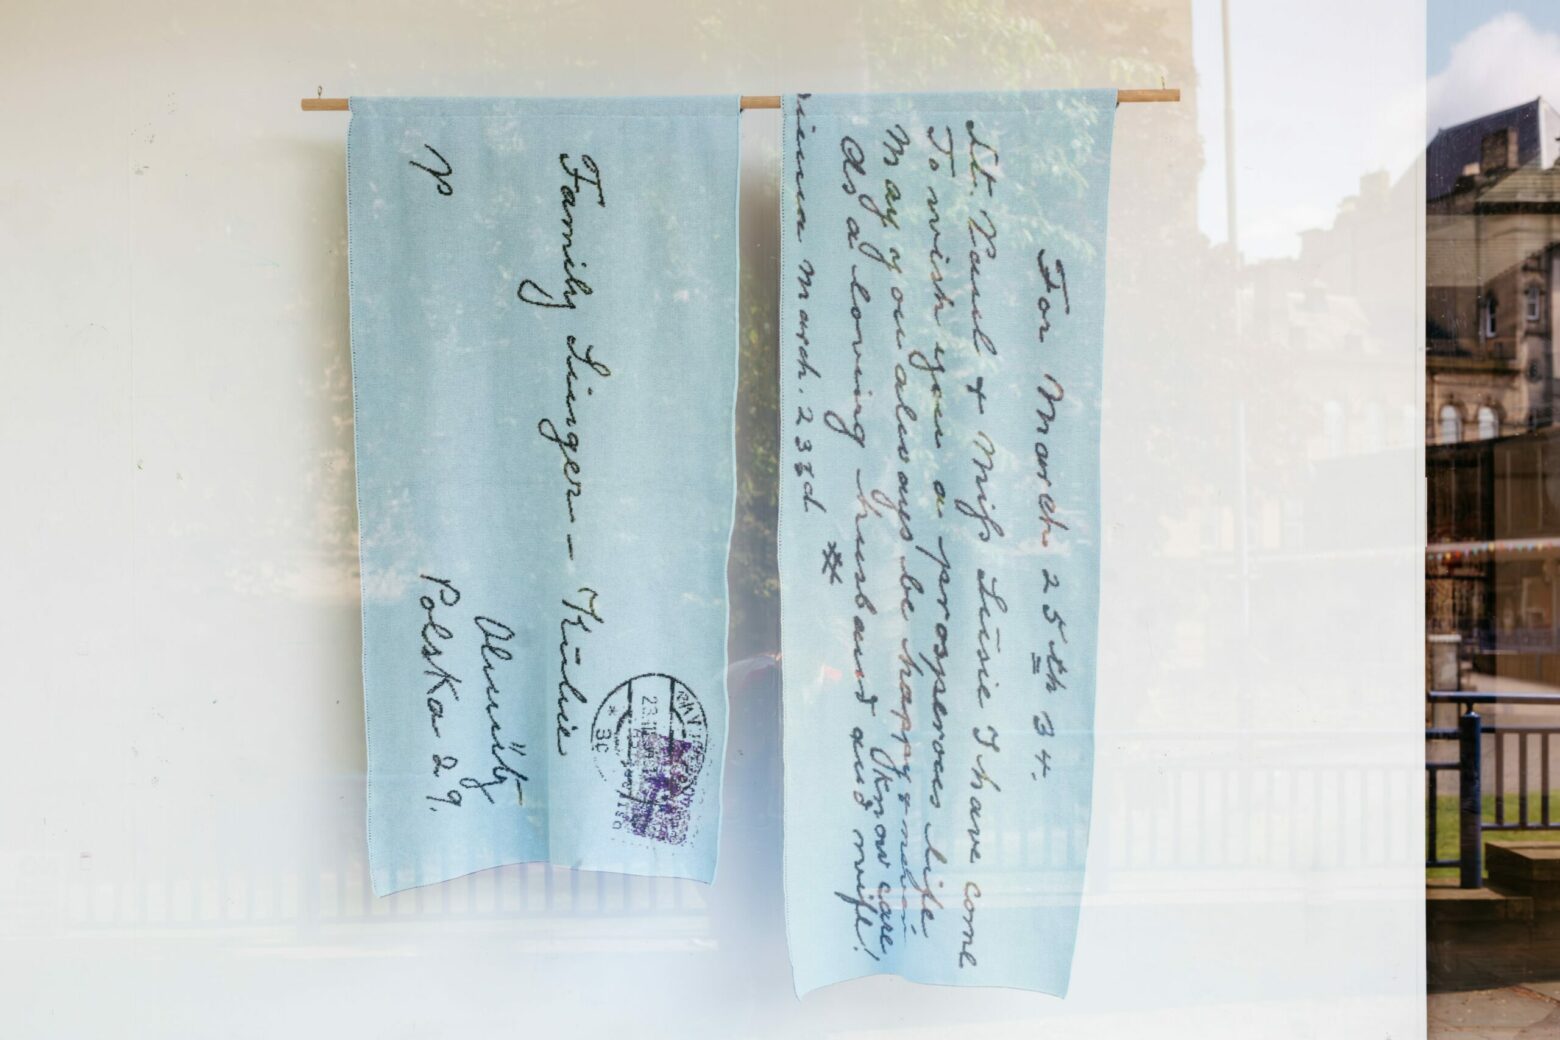 Family Singer - Kulie
Olmütz
Polska 29.
For March 25th 34.
St. Paul & Miss Susie I have come
To wish you a prosperous life.
May you always be happy &
know care!
As a loving husband and wife!
March. 23rd